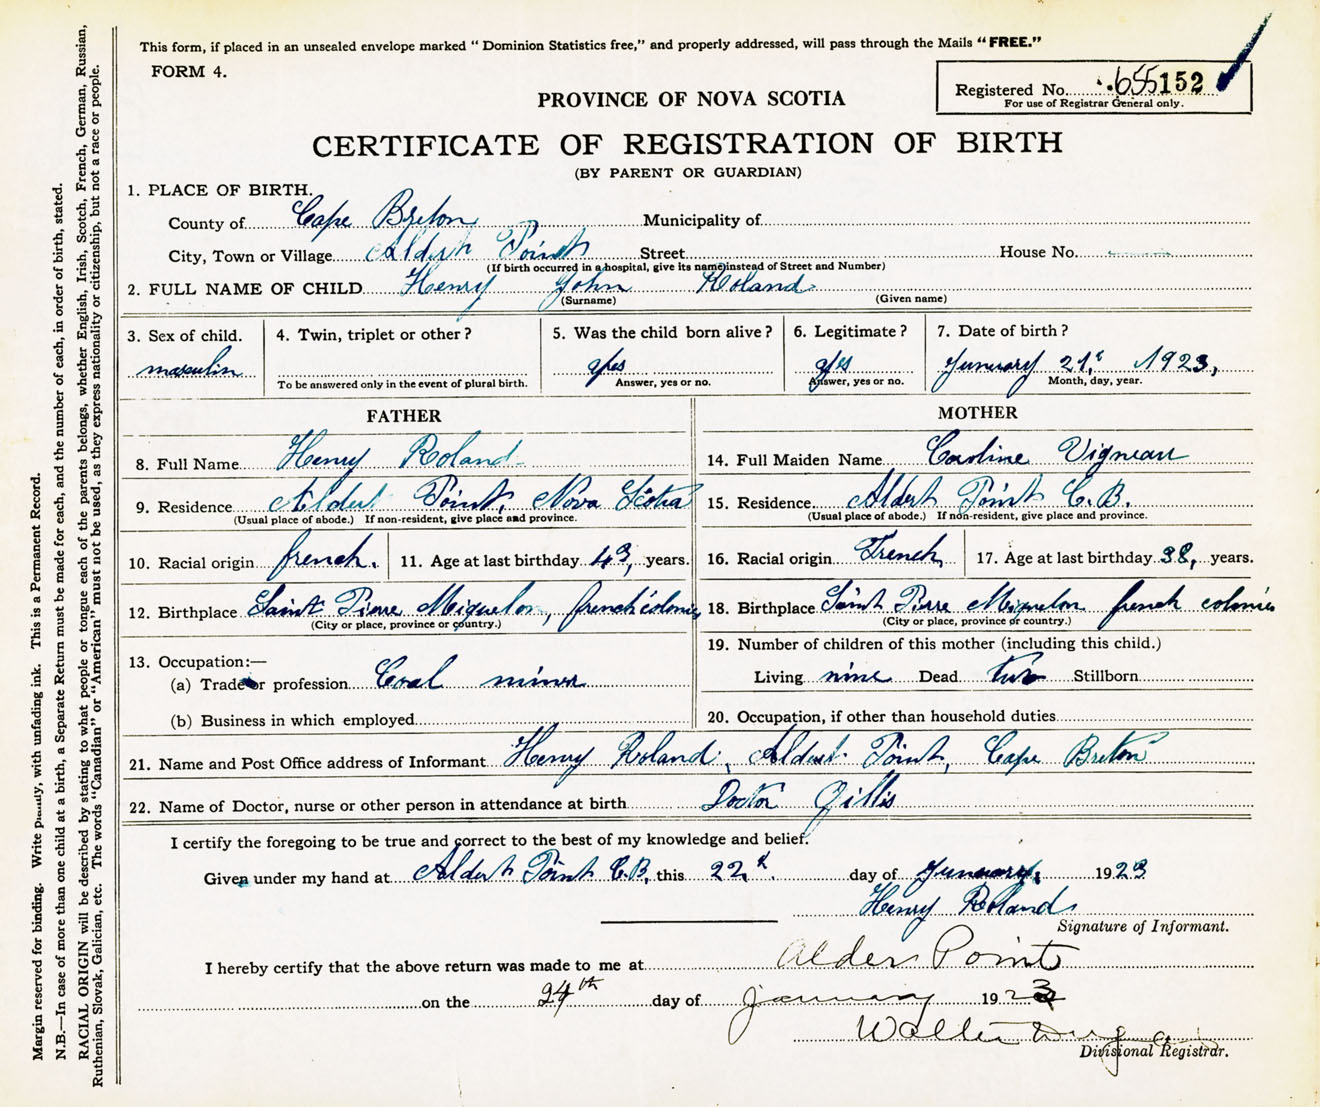 This form, if placed in an unsealed envelope marked "Dominion Statistics free," and properly addressed, will pass through the Mails "FREE."
FORM 4.
Registered No. 655152
For use of Registrar General only.
PROVINCE OF NOVA SCOTIA
CERTIFICATE OF REGISTRATION OF BIRTH
(BY PARENT OR GUARDIAN)
1. PLACE OF BIRTH.
County of Cape Breton Municipality of
City, Town or Village Aldert Point Street House No.
(If birth occurred in a hospital, give its name instead of Street and Number)
2. FULL NAME OF CHILD Henry John Roland
(Surname) (Given name)
3. Sex of child. 4. Twin, triplet or other? 5. Was the child born alive? 6. Legitimate? 7. Date of birth?
masculin yes yes Junuary 21t 1923,
To be answered only in the event of plural birth. Answer, yes or no. Answer, yes or no. Month, day, year.
FATHER MOTHER
8. Full Name Henry Roland 14. Full Maiden Name Caroline Vigneau
9. Residence Aldert Point, Nova Scotia 15. Residence Aldert Point C.B.
(Usual place of abode.) If non-resident, give place and province. (Usual place of abode.) If non-resident, give place and province.
10. Racial origin french. 11. Age at last birthday 43, years. 16. Racial origin French 17. Age at last birthday 38, years.
12. Birthplace Saint Pierre Miquelon, french colonies 18. Birthplace Saint Pierre Miquelon french colonies
(City or place, province or country.) (City or place, province or country.)
13. Occupation:— 19. Number of children of this mother (including this child.)
(a) Trade or profession Coal miner Living nine Dead two Stillborn
(b) Business in which employed 20. Occupation, if other than household duties
21. Name and Post Office address of Informant Henry Roland, Aldert Point, Cape Breton
22. Name of Doctor, nurse or other person in attendance at birth Doctor Gillis
I certify the foregoing to be true and correct to the best of my knowledge and belief.
Given under my hand at Aldert Point C.B, this 22t. day of Junuary, 1923
Henry Roland
Signature of Informant.
I hereby certify that the above return was made to me at Alder Point
on the 24th day of January 1923
Walter
Divisional Registrar.
Margin reserved for binding. Write plainly, with unfading ink. This is a Permanent Record.
N.B.—In case of more than one child at a birth, a Separate Return must be made for each, and the number of each, in order of birth, stated.
RACIAL ORIGIN will be described by stating to what people or tongue each of the parents belongs, whether English, Irish, Scotch, French, German, Russian,
Ruthenian, Slovak, Galician, etc. The words "Canadian" or "American" must not be used, as they express nationality or citizenship, but not a race or people.